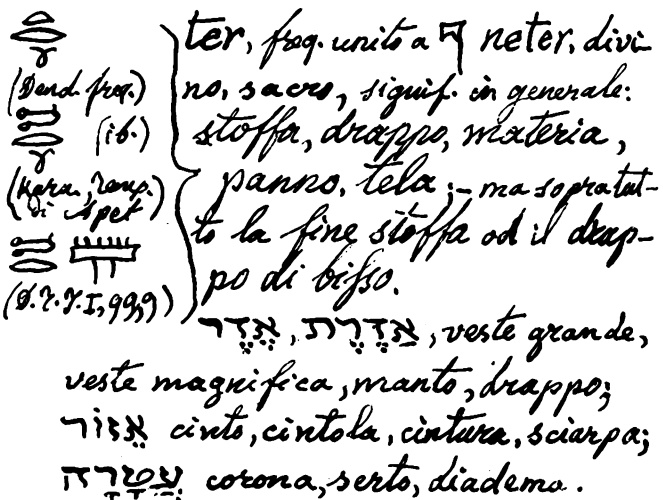 (Dend. freq.)
(ib.)
(Kara.
di Apet)
ter, freq. unito a neter, divi-
no, sacro, signif. in generale:
stoffa, drappo, materia,
panno, tela ;– ma sopratut-
to la fine stoffa od il drap-
po di bisso.
אַדֶּרֶת, אֶדֶר, veste grande,
veste magnifica, manto, drappo;
אֵזוֹר cinto, cintola, cintura, sciarpa;
עֲטָרָה corona, serto, diadema.